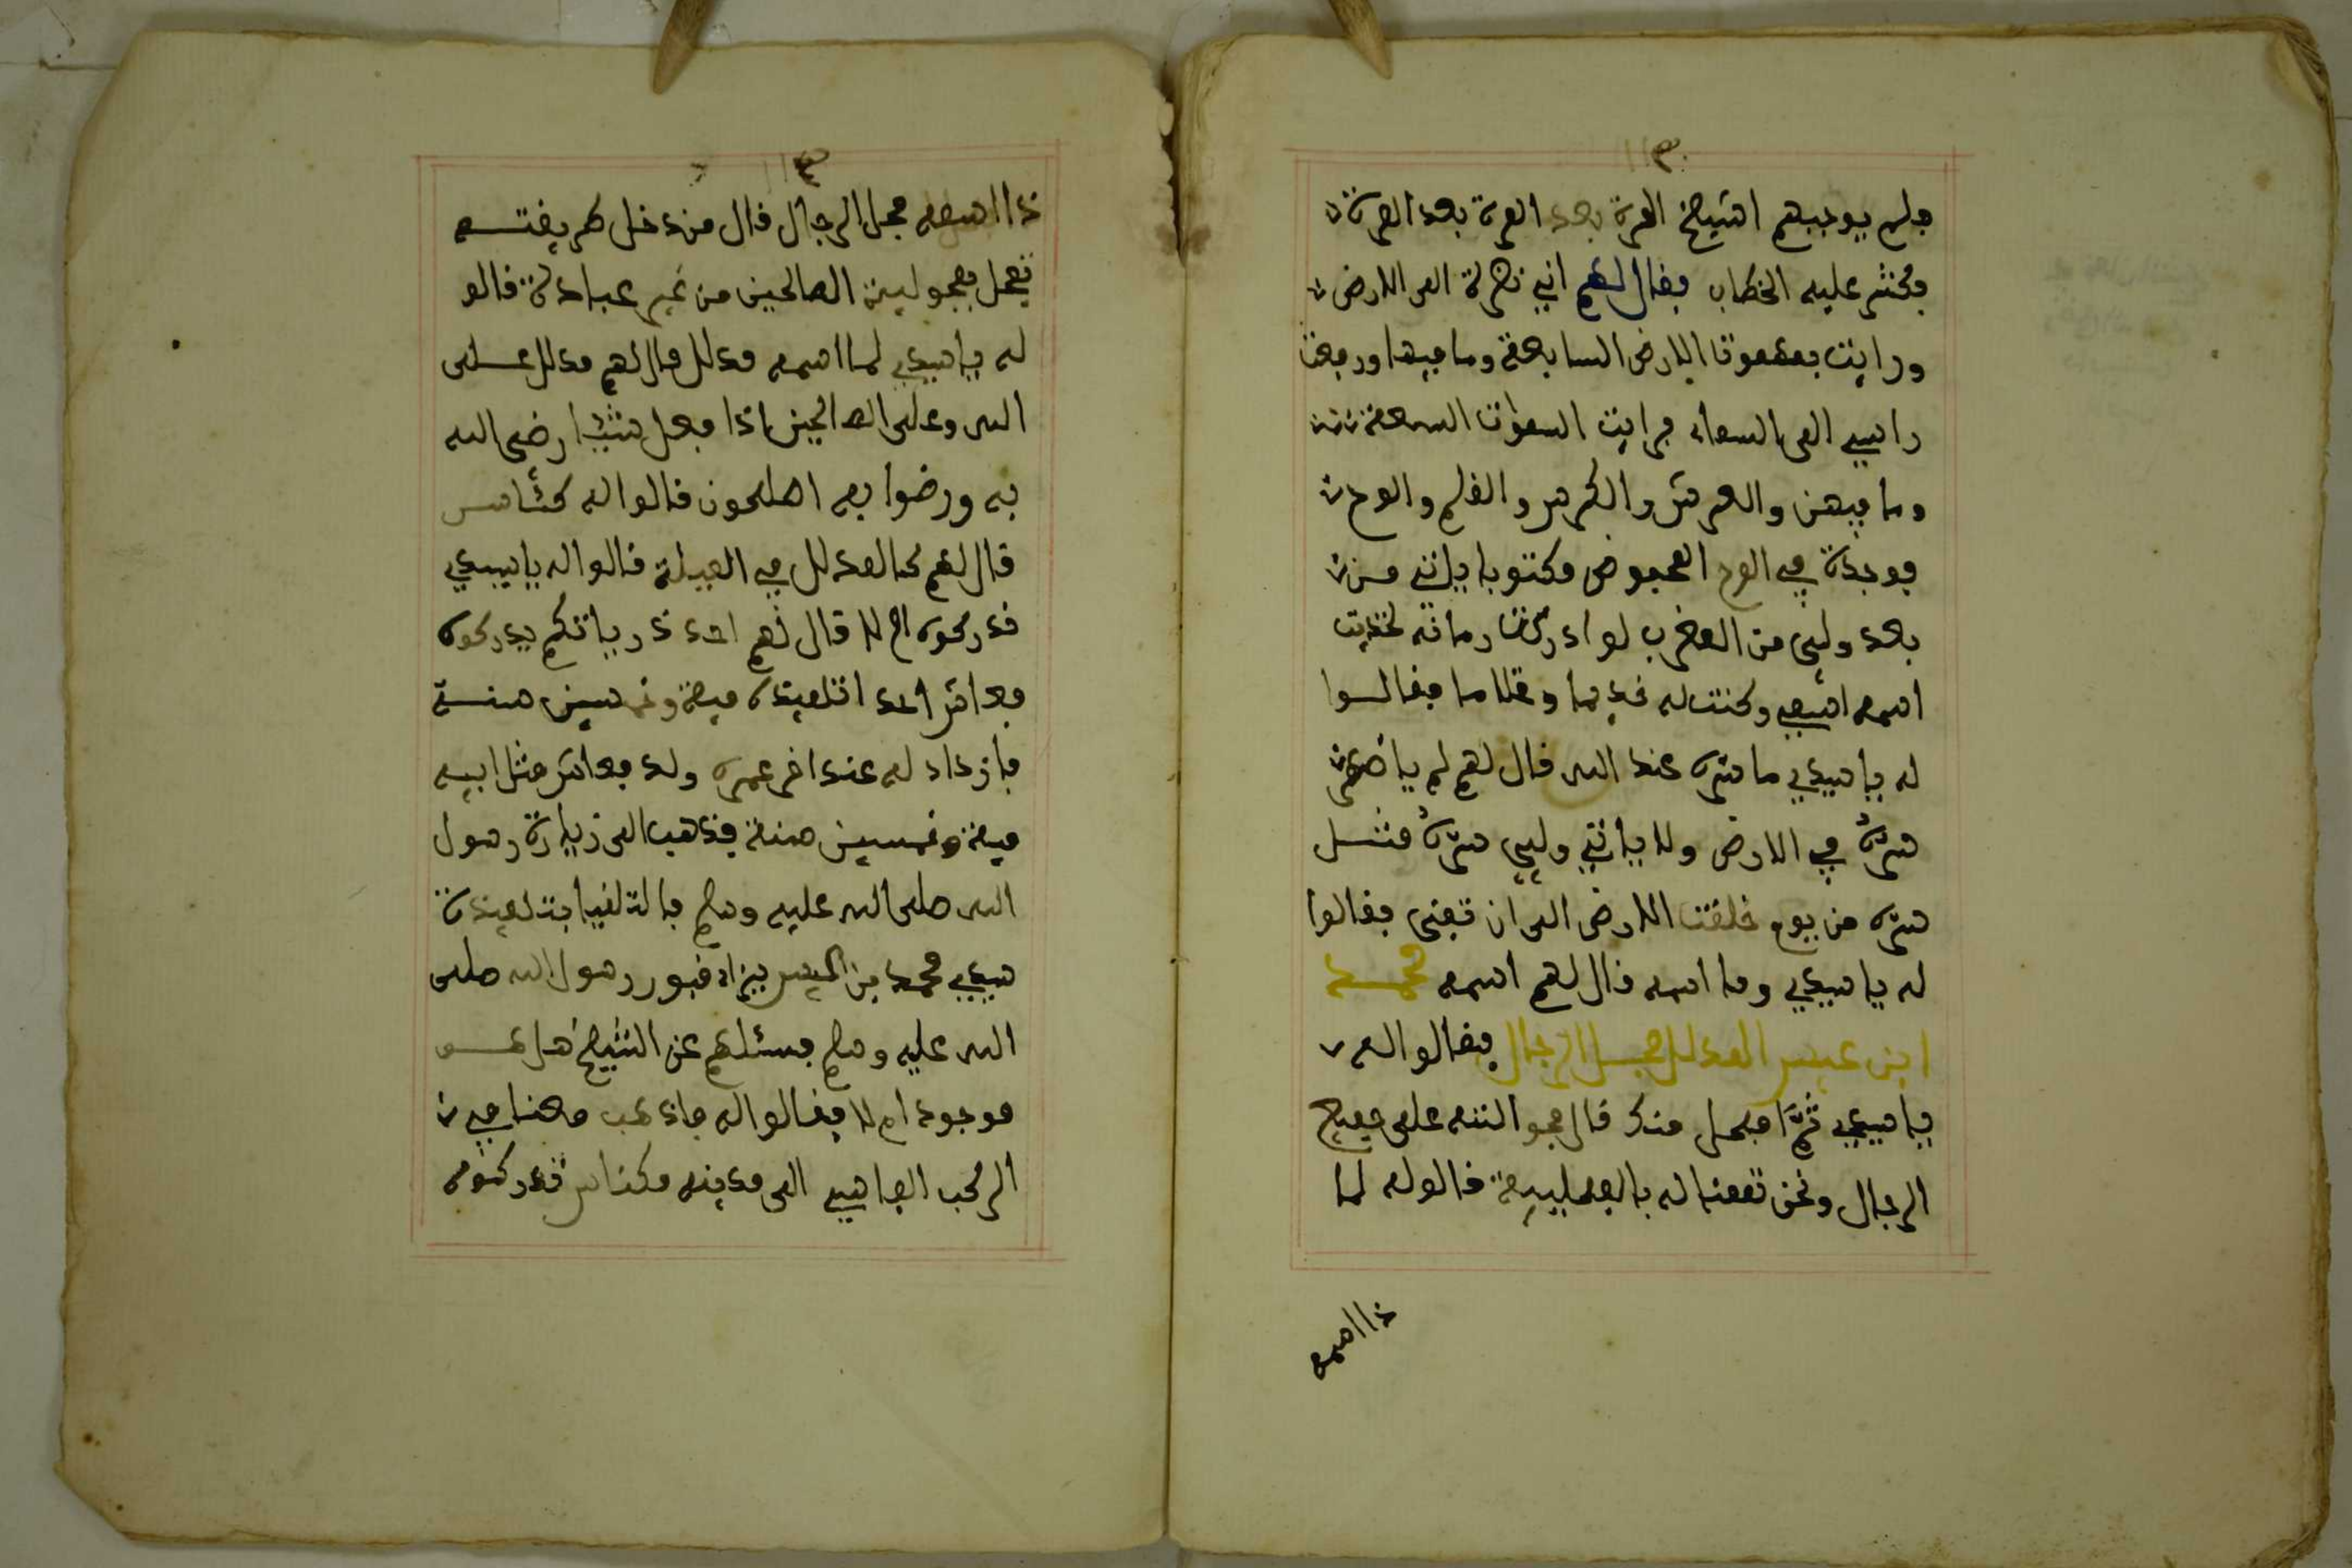 فلم يوجبهم الشيخ المرة بعد المرة بعد المرة
فكثر عليه الخطاب فقال لهم اني نظرة الى الارض
ورايت بمهموتا الارض السابعة وما فيها ورفعت
راسي الى السماء فرايت السموات السبعة
وما فيهن والعرش والكرسي والقلم والوح
فوجدة في الوح المحفوض مكتوبا ياتي من
بعد ولي من المغرب لو ادركت زمانه لكنت
اسمه اتبعي وكنت له خديما وغلاما فقالوا
له يا سيدي ما سره عند الله قال لهم لم ياضهر
سره في الارض ولا ياتي ولي سره مثل
سره من يوم خلقت الارض الى ان تفنى فقالوا
له يا سيدي وما اسمه قال لهم اسمه محمد
ابن عيسى المدلل فحل الرجال فقالوا له
يا سيدي ثم افحل منك قال هو النه على جميع
الرجال ونحن تمعنا له بالفحليية قالو له لما
ذا اسمه
ذا اسمه فحل الرجال قال من دخل طريقته
تعمل فحولية الصالحين من غير عبادة قالو
له يا سيدي لما اسمه مدلل قال لهم مدلل على
الله وعلى الصالحين اذا فعل شيئا رضى الله
به ورضوا به الصلحون قالوا له كـئامس
قال لهم كالمدلل في القبيلة قالوا له يا سيدي
ندركوه ام لا قال لهم احد ذرياتكم يدركوه
فعاش احد اتلميذه مية وخمسين سنة
فازداد له عند اخر عمره ولد فعاش مثل ابيه
مية وخمسين سنة فذهب الى زيارة رسول
الله صلى الله عليه وسلم فالتلفيا بتلميذة
سيدي محمد بن عيسى يزاد قبور رسول الله صلى
الله عليه وسلم فسئلهم عن الشيخ هل هو
موجود ام لا فقالوا له فاذهب معنا في
الركب الفاسي الى مدينه مكناس تدركوه